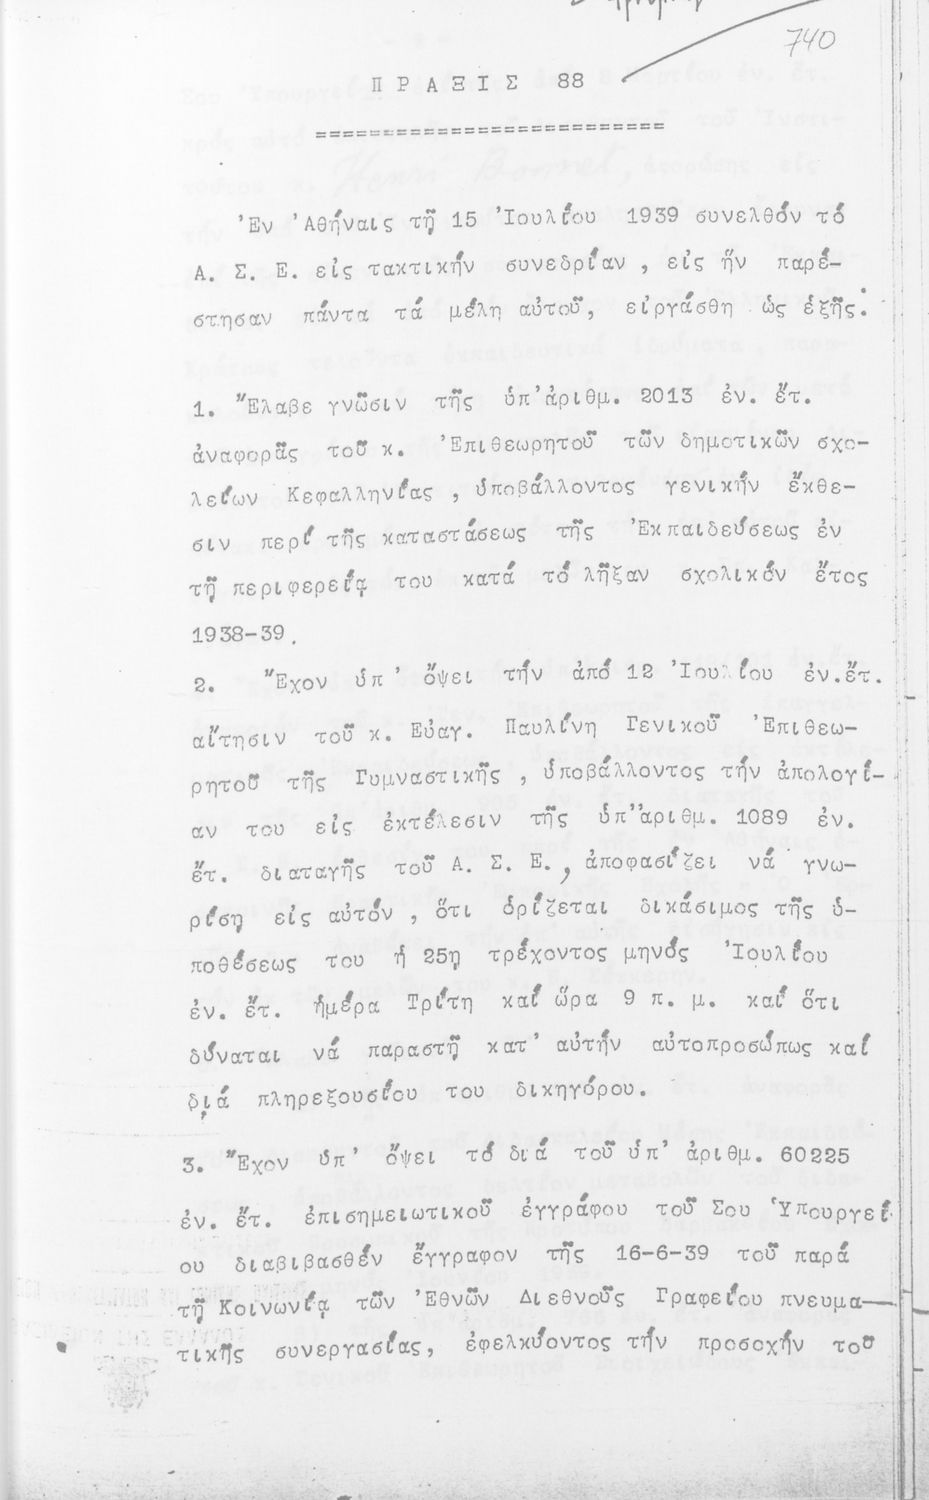 740
ΠΡΑΞΙΣ 88
==========================
Ἐν Ἀθήναις τῇ 15 Ἰουλίου 1939 συνελθόν τό
Α. Σ. Ε. εἰς τακτικήν συνεδρίαν, εἰς ἥν παρέ-
στησαν πάντα τά μέλη αὐτοῦ, εἰργάσθη ὡς ἑξῆς:
1. Ἔλαβε γνῶσιν τῆς ὑπ' ἀριθμ. 2013 ἐν. ἔτ.
ἀναφορᾶς τοῦ κ. Ἐπιθεωρητοῦ τῶν δημοτικῶν σχο-
λείων Κεφαλληνίας, ὑποβάλλοντος γενικήν ἔκθε-
σιν περί τῆς καταστάσεως τῆς Ἐκπαιδεύσεως ἐν
τῇ περιφερείᾳ του κατά τό λῆξαν σχολικόν ἔτος
1938-39.
2. Ἔχον ὑπ' ὄψει τήν ἀπό 12 Ἰουλίου ἐν.ἔτ.
αἴτησιν τοῦ κ. Εὐαγ. Παυλίνη Γενικοῦ Ἐπιθεω-
ρητοῦ τῆς Γυμναστικῆς, ὑποβάλλοντος τήν ἀπολογί-
αν του εἰς ἐκτέλεσιν τῆς ὑπ' ἀριθμ. 1089 ἐν.
ἔτ. διαταγῆς τοῦ Α. Σ. Ε., ἀποφασίζει νά γνω-
ρίσῃ εἰς αὐτόν, ὅτι ὁρίζεται δικάσιμος τῆς ὑ-
ποθέσεως του ἡ 25η τρέχοντος μηνός Ἰουλίου
ἐν. ἔτ. ἡμέρα Τρίτη καί ὥρα 9 π. μ. καί ὅτι
δύναται νά παραστῇ κατ' αὐτήν αὐτοπροσώπως καί
διά πληρεξουσίου του δικηγόρου.
3. Ἔχον ὑπ' ὄψει τό διά τοῦ ὑπ' ἀριθμ. 60225
ἐν. ἔτ. ἐπισημειωτικοῦ ἐγγράφου τοῦ Σου Ὑπουργεί
ου διαβιβασθέν ἔγγραφον τῆς 16-6-39 τοῦ παρά
τῇ Κοινωνίᾳ τῶν Ἐθνῶν Διεθνοῦς Γραφείου πνευμα-
τικῆς συνεργασίας, ἐφελκύοντος τήν προσοχήν τοῦ